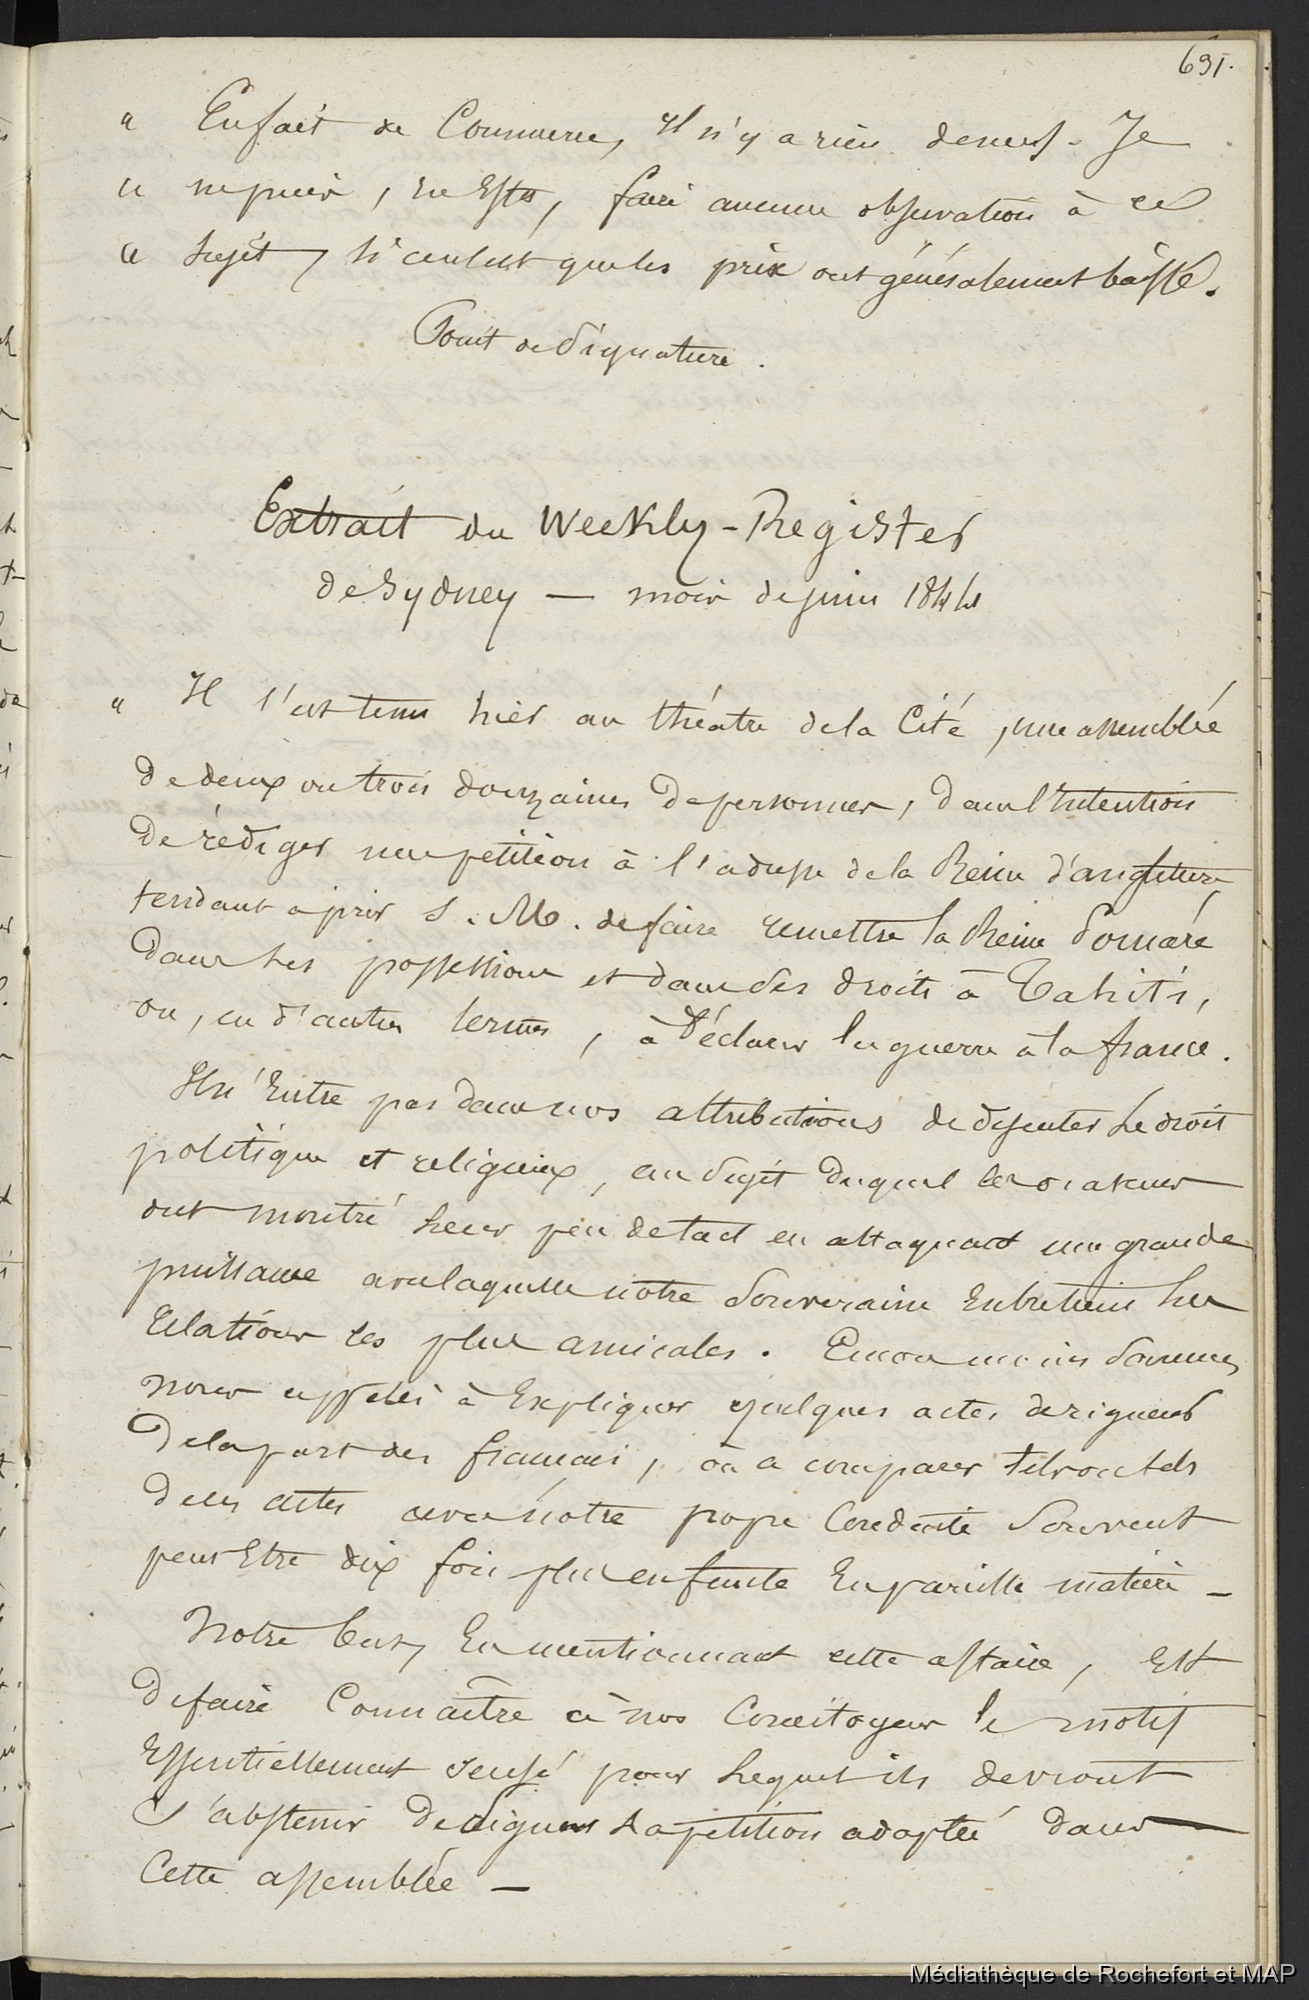 691.
" En fait de Commerce, il n'y a rien de neuf. Je
" ne puis, du reste, faire aucune observation à ce
" Sujet, si ce n'est que les prix ont généralement baissé.
Point de Signature.
Extrait du Weekly-Register
de Sydney — mois de juin 1844
" Il s'est tenu hier au théatre de la Cité, une assemblée
de deux ou trois douzaines de personnes, dans l'intention
de rédiger une petition à l'adresse de la Reine d'angleterre,
tendant à prier S. M. de faire remettre la Reine Pomaré
dans ses possessions et dans ses droits à Tahiti,
ou, en d'autres termes, à déclarer la guerre à la france.
Il n'entre pas dans nos attributions de discuter le droit
politique et religieux, au sujet duquel les orateurs
ont montré leur peu de tact en attaquant une grande
puissance avec laquelle notre Souveraine Entretient les
relations les plus amicales. Encore moins sommes
nous appelés à Expliquer quelques actes de rigueur
de la part des francais, ou a comparer tels ou tels
de ces actes avec notre propre Conduite souvent
peut Etre dix fois plus en faute En pareille matière —
Notre but, En mentionnant cette affaire, Est
de faire Connaître à nos Concitoyens le motif
Essentiellement sensé pour lequel ils devront
s'abstenir de signer la petition adoptée dans
Cette assemblée —
Médiathèque de Rochefort et MAP